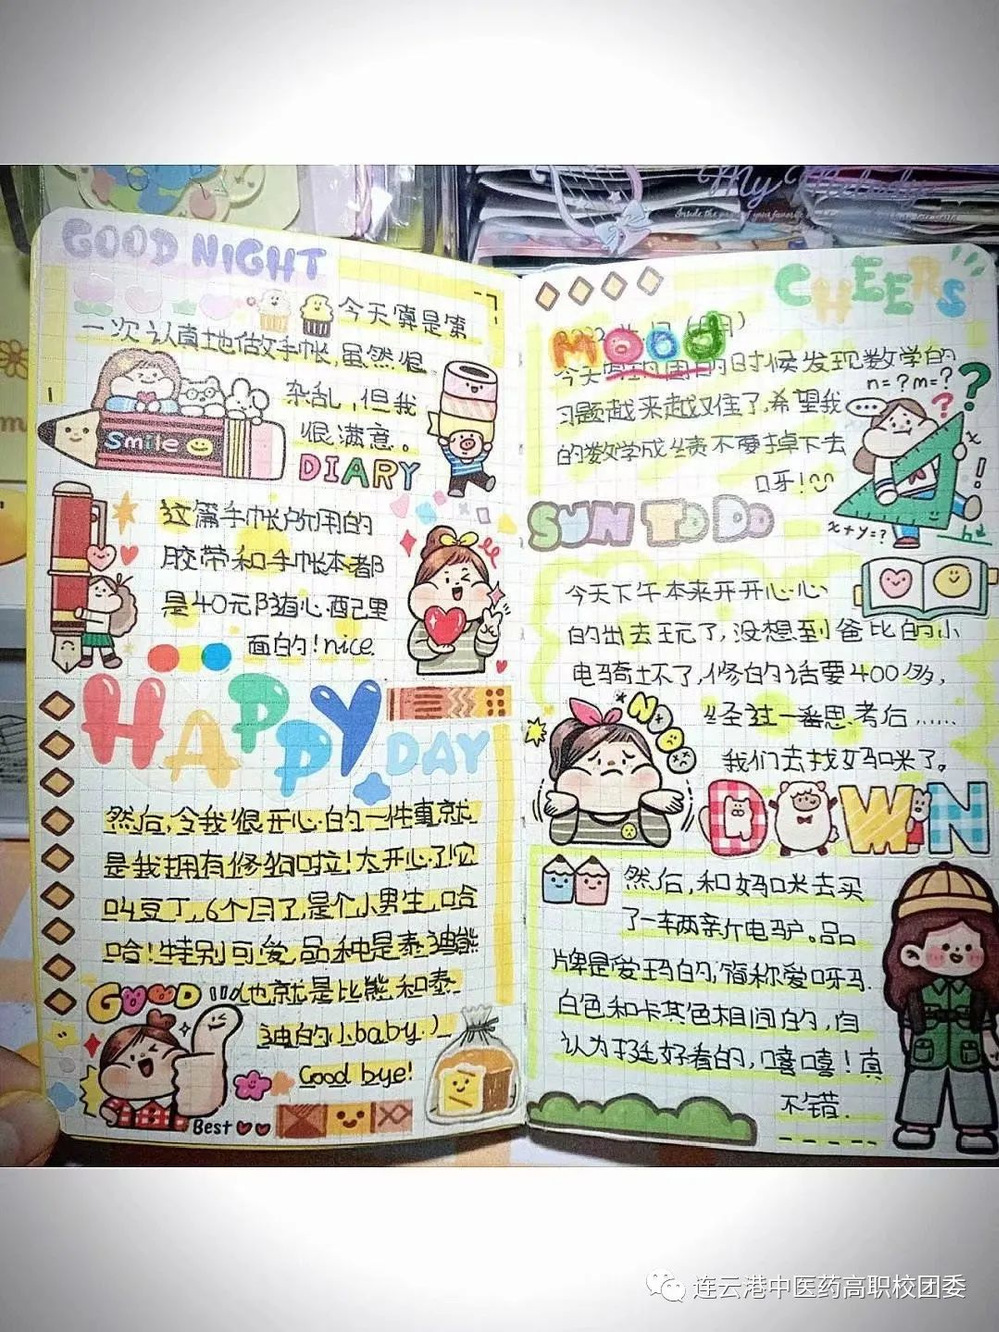 My Melody
GOOD NIGHT
今天真是第
一次认真地做手帐,虽然很
杂乱,但我
很满意。
Smile
DIARY
这篇手帐所用的
胶带和手帐本都
是40元随心配里
面的!nice.
HAPPY
DAY
然后,令我很开心的一件事就
是我拥有修狗啦!太开心了!它
叫豆丁,6个月了,是个小男生,哈
哈!特别可爱,品种是泰迪熊
GOOD
(也就是比熊和泰
迪的小baby.)
Good bye!
Best
CHEERS
MOOD
今天 的时候发现数学的
n=? m=?
?
?
习题越来越难了,希望我
的数学成绩不要掉下去
呀!
x
x+y=?
SUN TO DO
今天下午本来开开心心
的出去玩了,没想到爸比的小
电驴坏了,修的话要400多,
经过一番思考后……
我们去找妈咪了。
NO
DOWN
然后,和妈咪去买
了一车两亲斤电驴。品
牌是爱玛的,简称爱呀马.
白色和卡其色相间的,自
认为挺好看的,嘻嘻!真
不错.
连云港中医药高职校团委